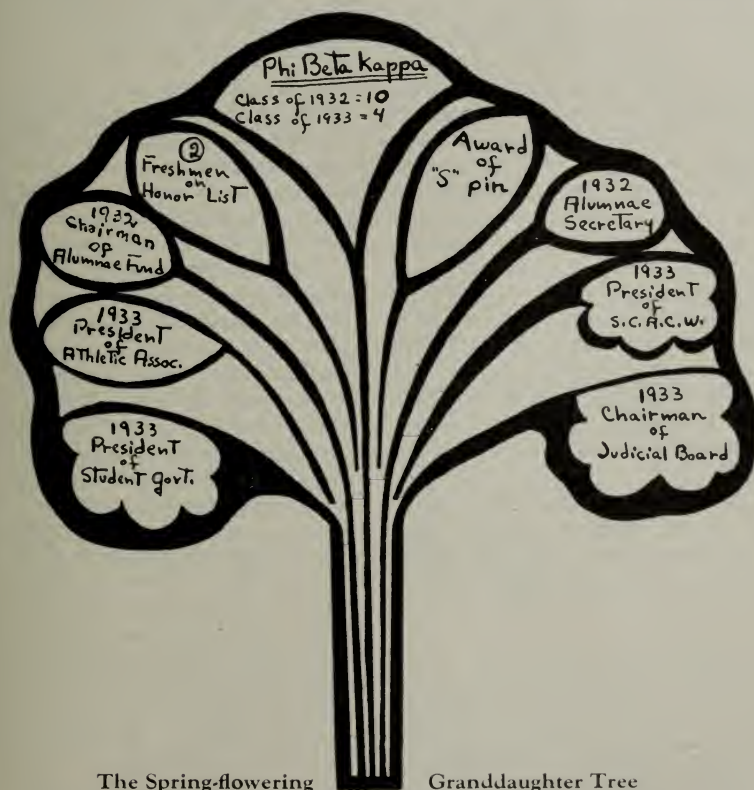 Phi Beta Kappa
Class of 1932 = 10
Class of 1933 = 4
②
Freshmen
on
Honor List
Award
of
"S" pin
1932
Chairman
of
Alumnae Fund
1932
Alumnae
Secretary
1933
President
of
Athletic Assoc.
1933
President
of
S.C.A.C.W.
1933
President
of
Student Gov't.
1933
Chairman
of
Judicial Board
The Spring-flowering Granddaughter Tree